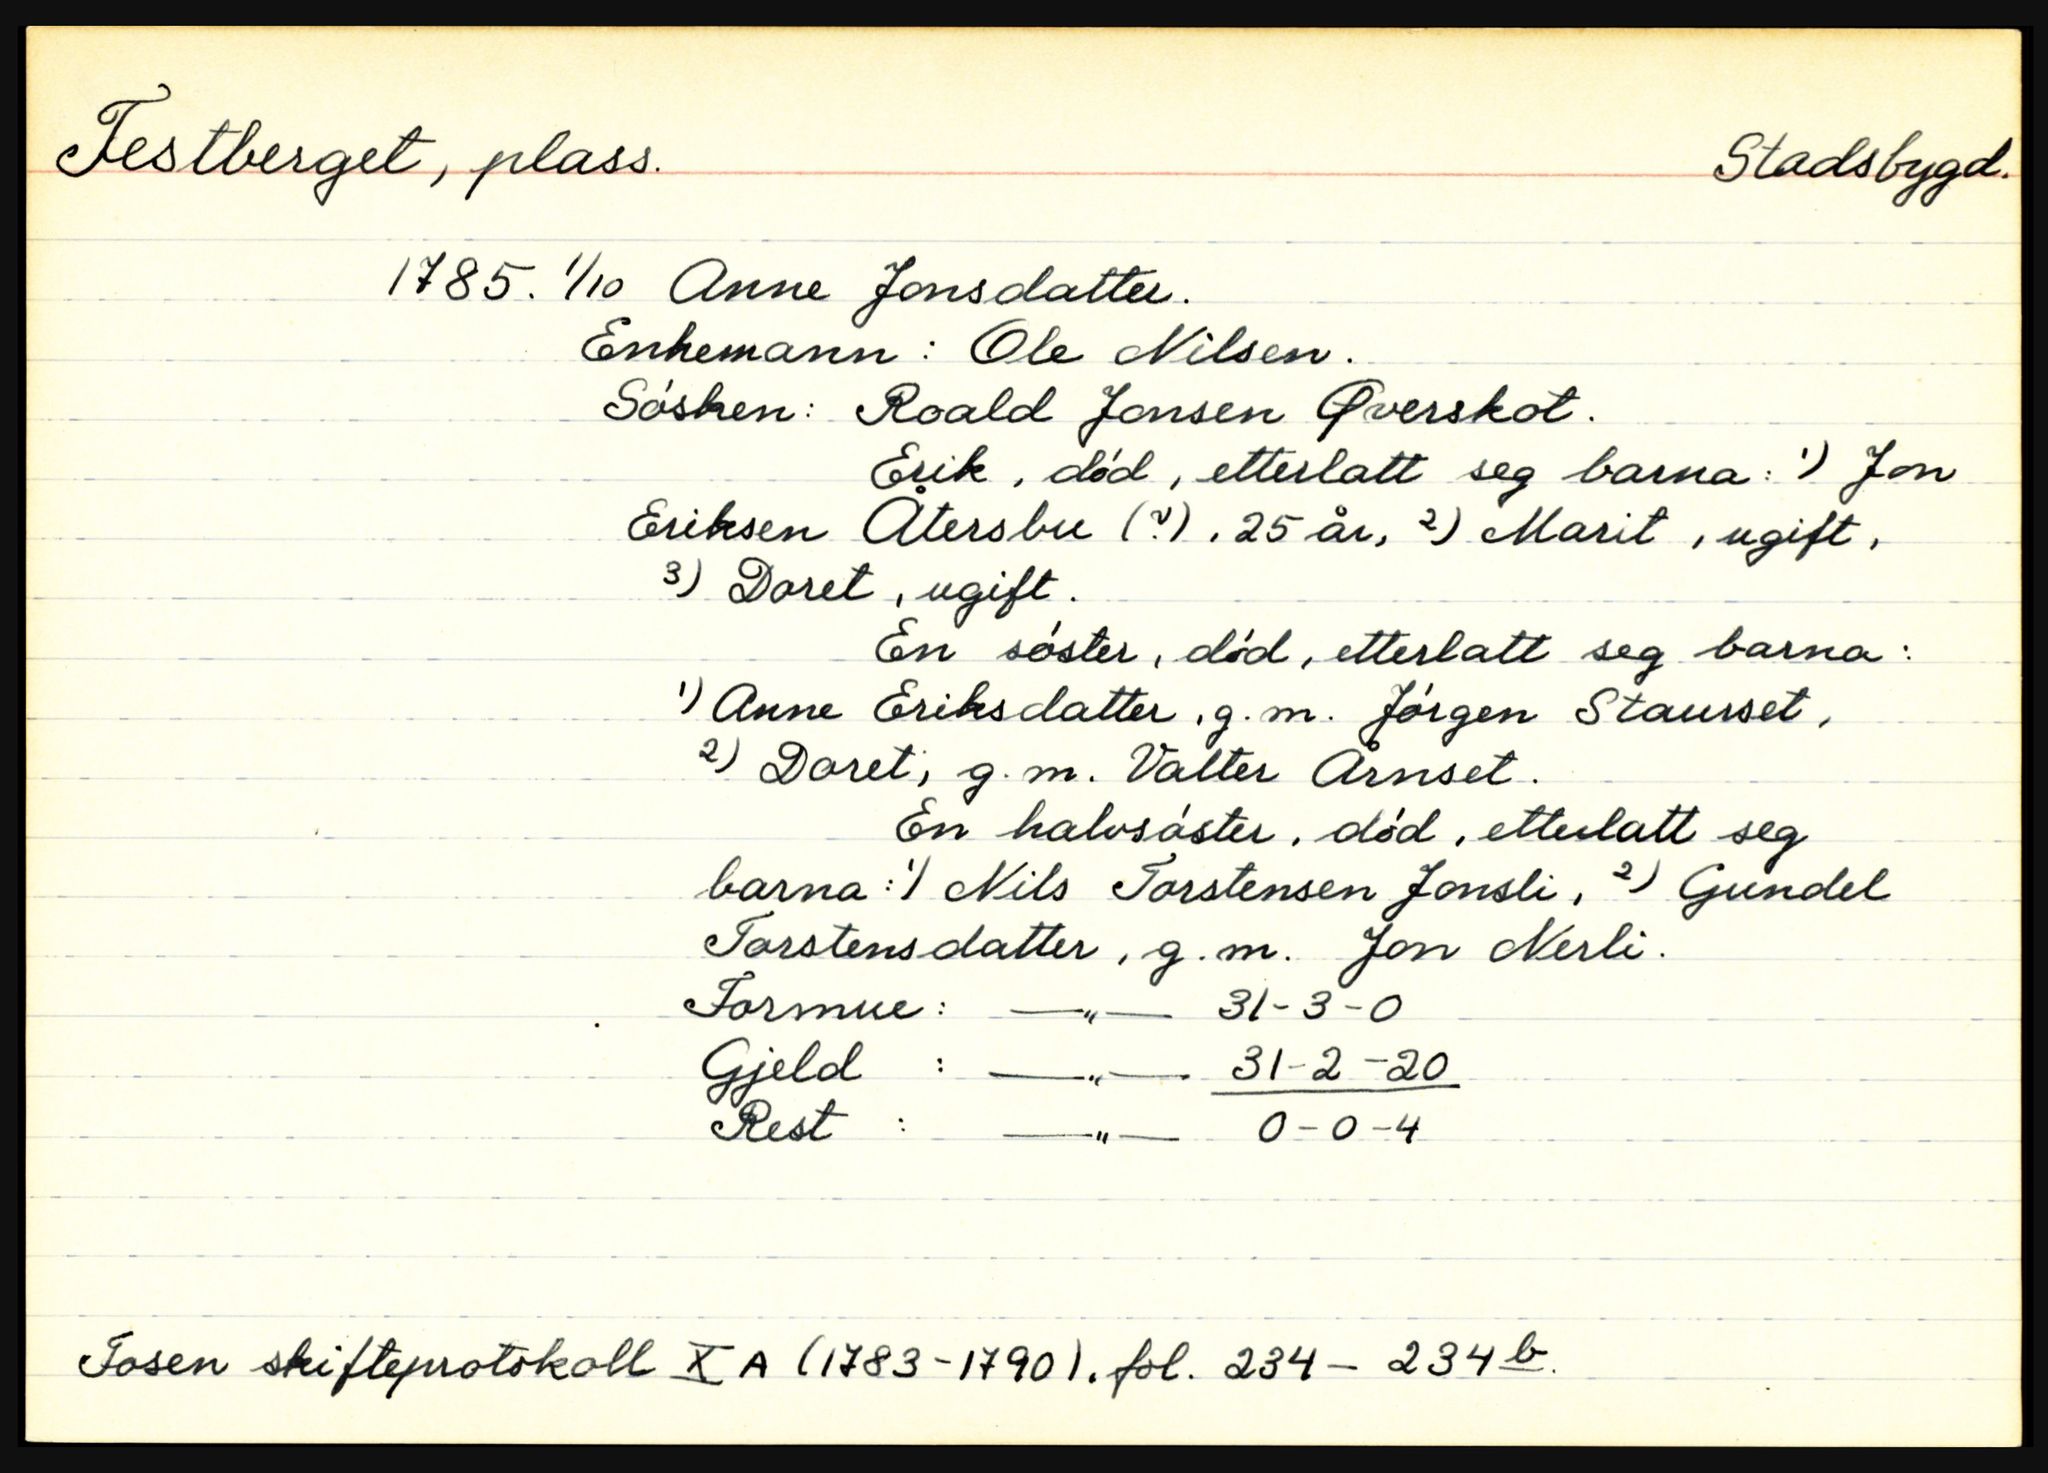 Festberget, plass. Stadsbygd.
1785. 1/10 Anne Jonsdatter.
Enkemann: Ole Nilsen.
Søsken: Roald Jonsen Øverskot.
Erik, død, etterlatt seg barna: 1) Jon
Eriksen Återsbu (?), 25 år, 2) Marit, ugift,
3) Doret, ugift.
En søster, død, etterlatt seg barna:
1) Anne Eriksdatter, g.m. Jørgen Staurset,
2) Doret, g.m. Valter Årnset.
En halvsøster, død, etterlatt seg
barna: 1) Nils Torstensen Jonsli, 2) Gundel
Torstensdatter, g.m. Jon Nerli.
Formue: —"— 31-3-0
Gjeld : —"— 31-2-20
Rest : —"— 0-0-4
Fosen skifteprotokoll X A (1783-1790), fol. 234 - 234 b.